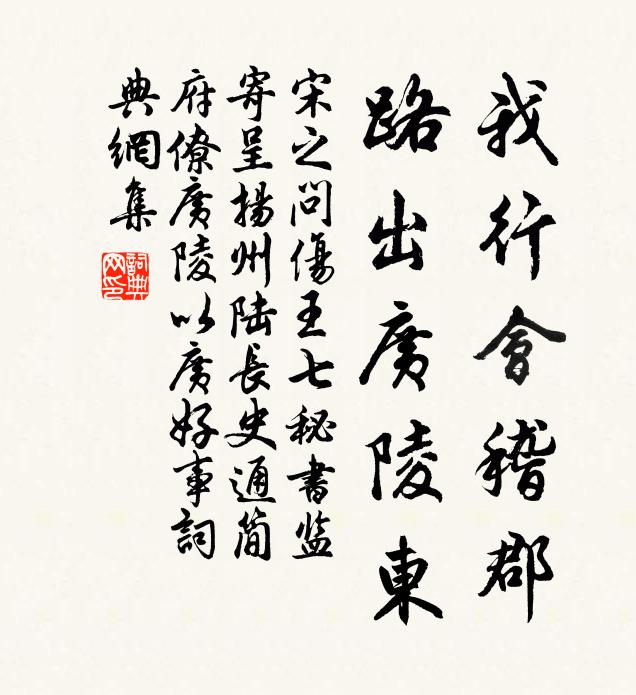 我行會稽郡
路出廣陵東
宋之問傷王七秘書監
寄呈揚州陆長史通简
府僚廣陵以廣好事詞
典網集
詞典
网印